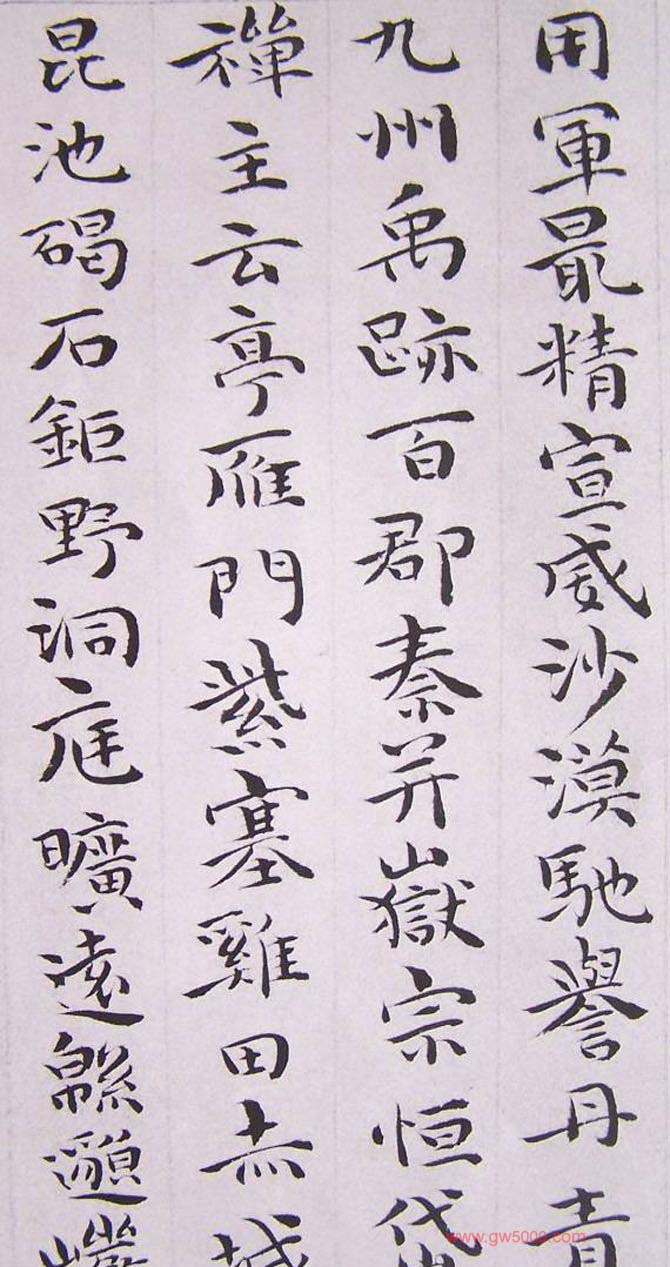 用軍最精宣威沙漠馳譽丹青
九州禹跡百郡秦并嶽宗恒岱
禪主云亭雁門紫塞雞田赤城
昆池碣石鉅野洞庭曠遠緜邈巖
www.gw5000.com